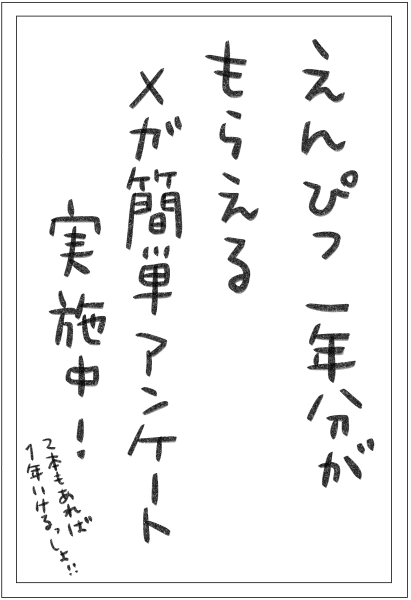 えんぴつ一年分が
もらえる
メガ簡単アンケート
実施中！
2本もあれば
1年いけるっしょ!!